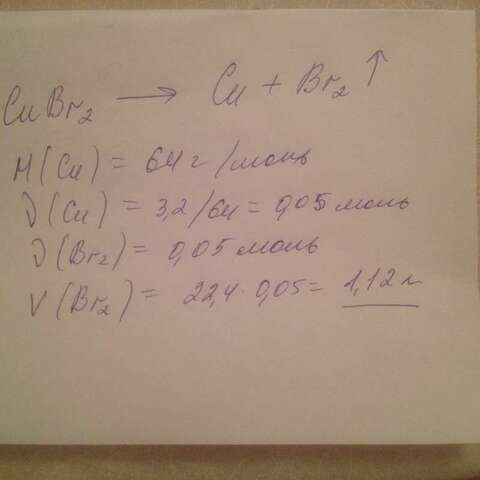 CuBr₂ → Cu + Br₂ ↑
M(Cu) = 64 г/моль
ν(Cu) = 3,2/64 = 0,05 моль
ν(Br₂) = 0,05 моль
V(Br₂) = 22,4 · 0,05 = 1,12 л